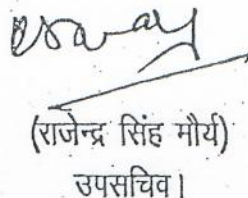 (राजेन्द्र सिंह मौर्य)
उपसचिव।